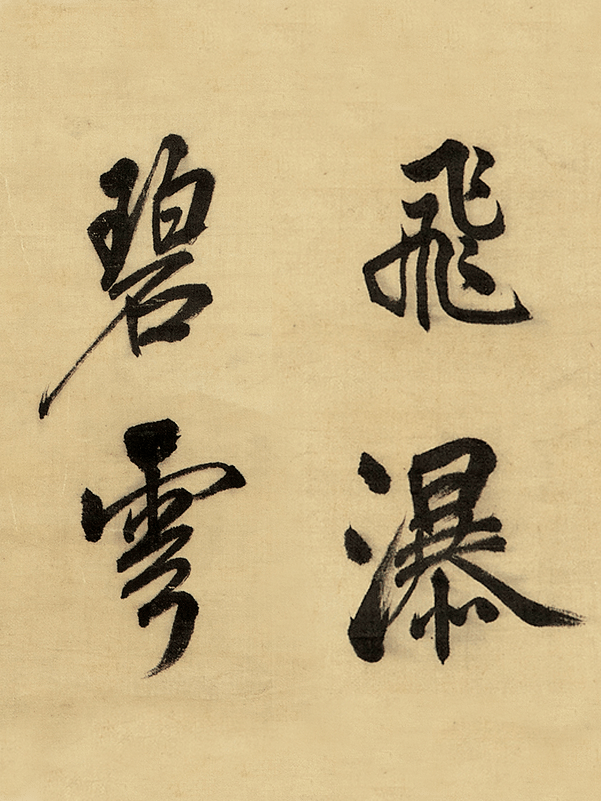 飛瀑
碧雲